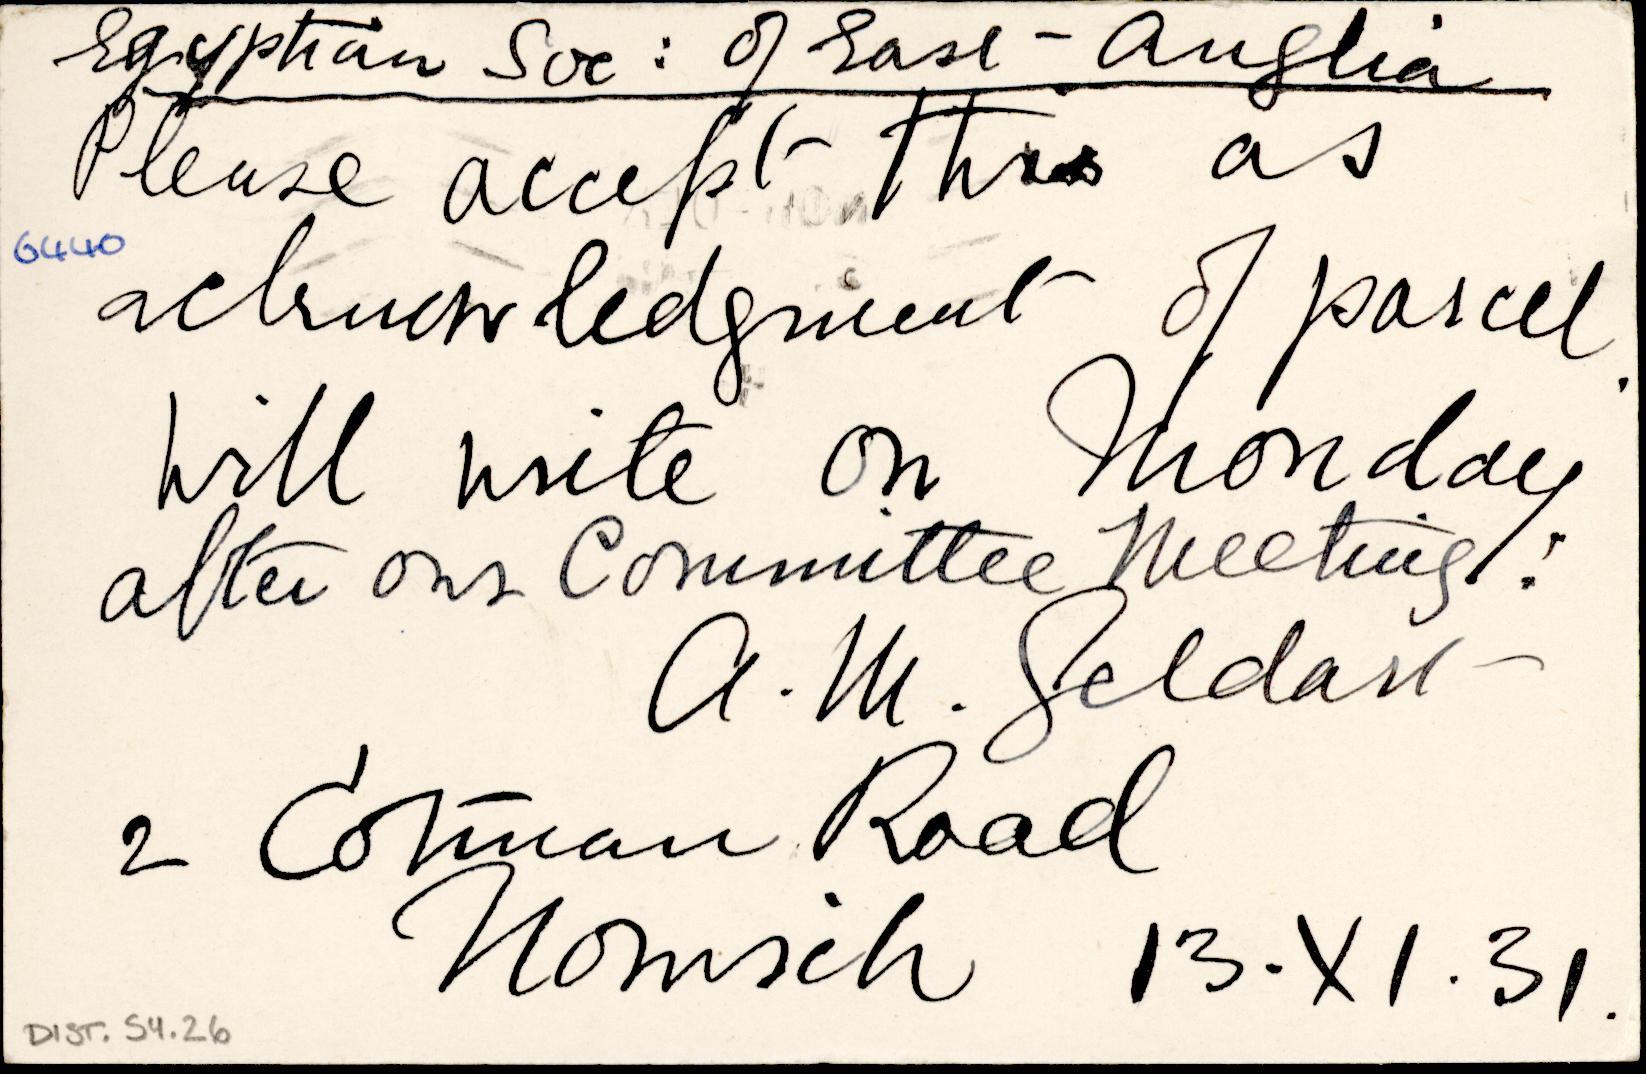 Egyptian Soc: of East-Anglia
Please accept this as
6440
acknowledgment of parcel.
Will write on Monday
after our Committee Meeting:
A. M. Geldart
2 Cotman Road
Norwich 13.XI.31.
DIST. 54.26